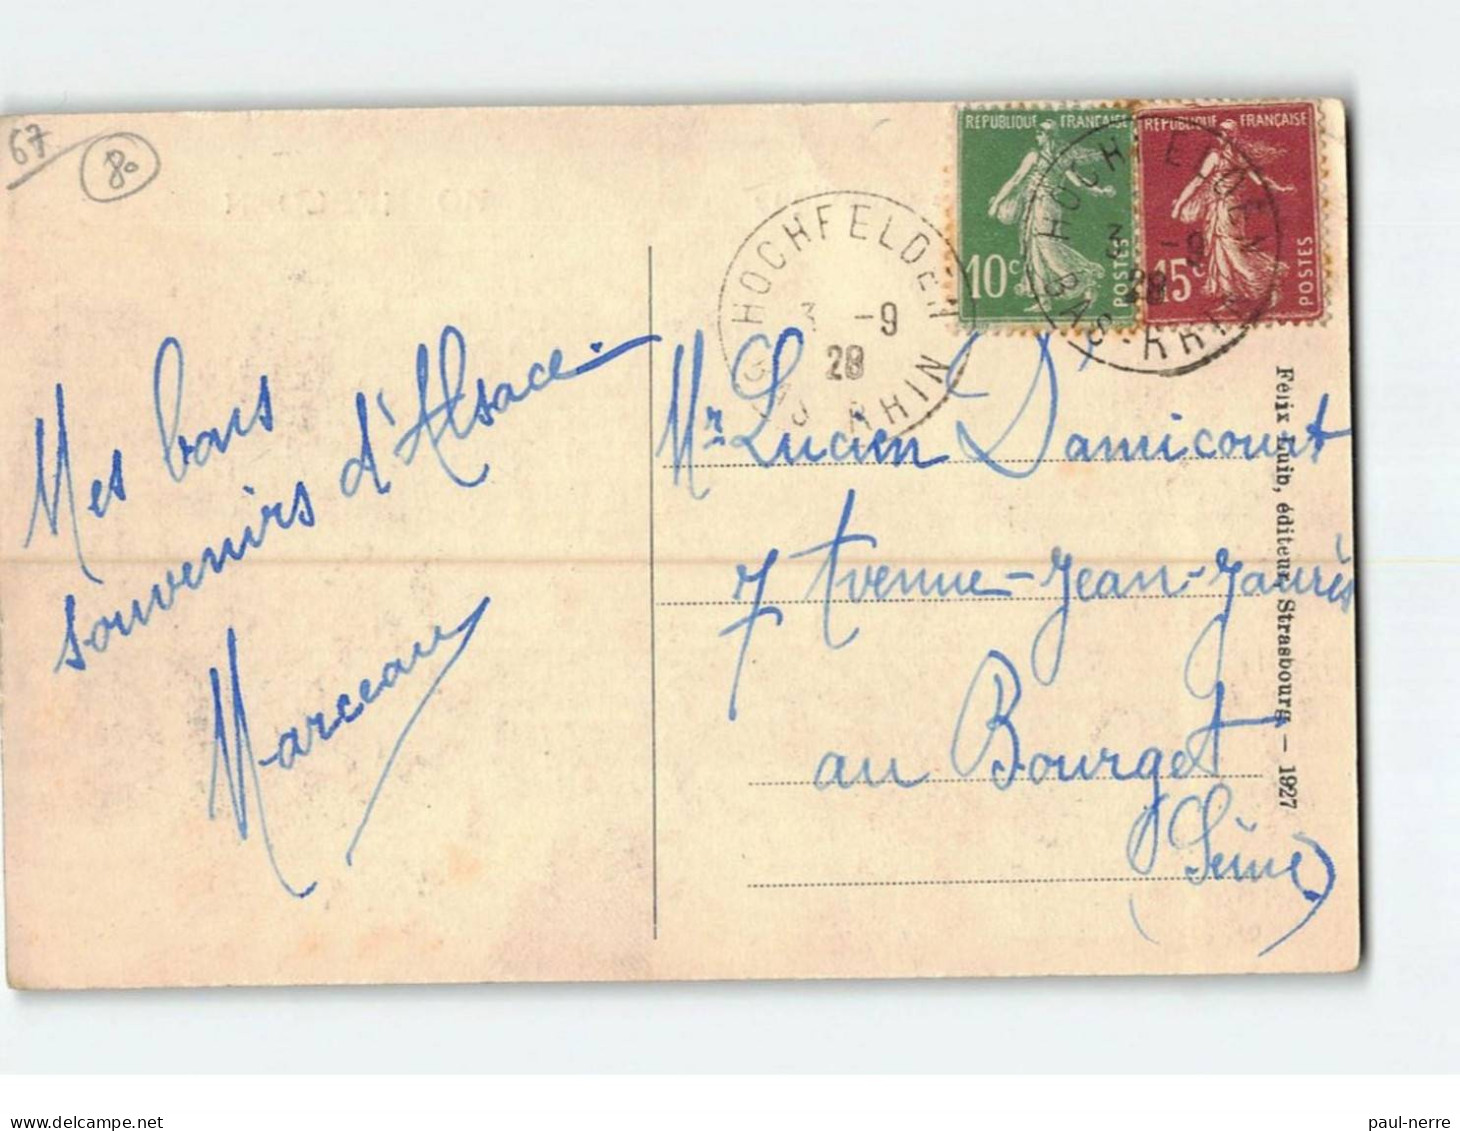 67
80
REPUBLIQUE FRANÇAISE
10c
POSTES
REPUBLIQUE FRANÇAISE
15c
POSTES
HOCHFELDEN
3 -9
28
BAS-RHIN
HOCHFELDEN
3 -9
28
BAS RHIN
Mes bons
souvenirs d'Alsace.
Marceau
Mr Lucien Damicourt
7 Avenue-Jean-Jaurès
au Bourget
(Seine)
Félix Luib, éditeur, Strasbourg — 1927
delcampe.net
paul-nerre